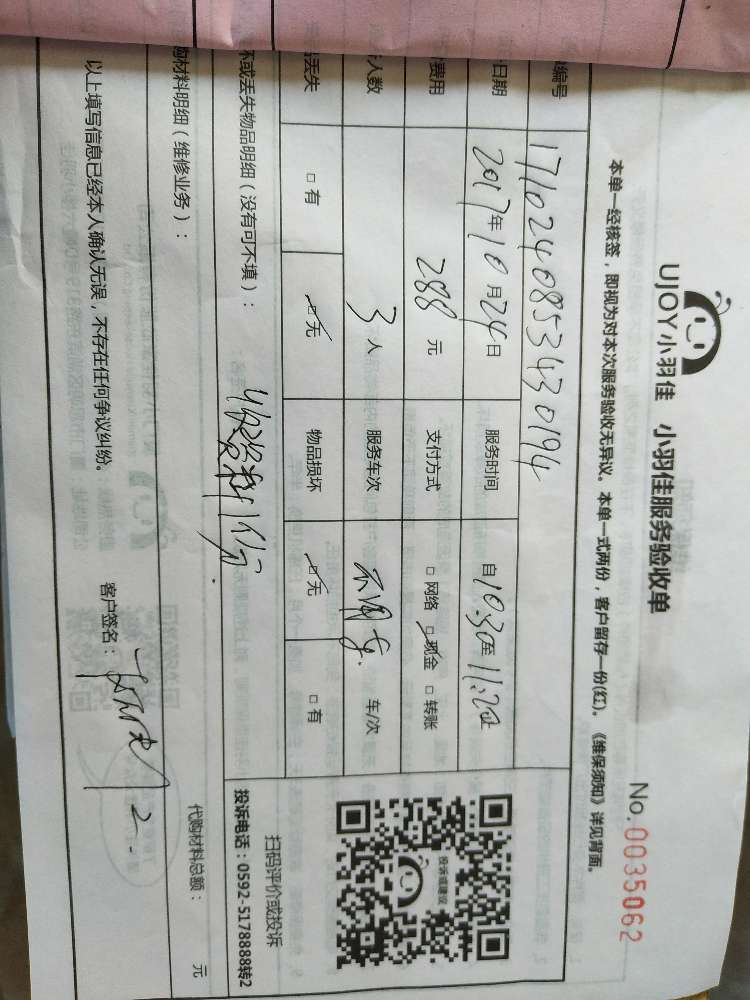 UJOY小羽佳 小羽佳服务验收单
No.0035062
本单一经核签,即视为对本次服务验收无异议。本单一式两份,客户留存一份(红)。《维保须知》详见背面。
编号 1710240853430194
日期 2017年10月24日 服务时间 自10:30至11:20
费用 288元 支付方式 □网络 □现金 □转账
人数 3人 服务车次 不用车 车/次
丢失 □有 □无 物品损坏 □无 □有
坏或丢失物品明细(没有可不填):
收资料1份.
投诉或建议
扫码评价或投诉
投诉电话:0592-5178888转2
购材料明细(维修业务):
代购材料总额: 元
以上填写信息已经本人确认无误,不存在任何争议纠纷。
客户签名: